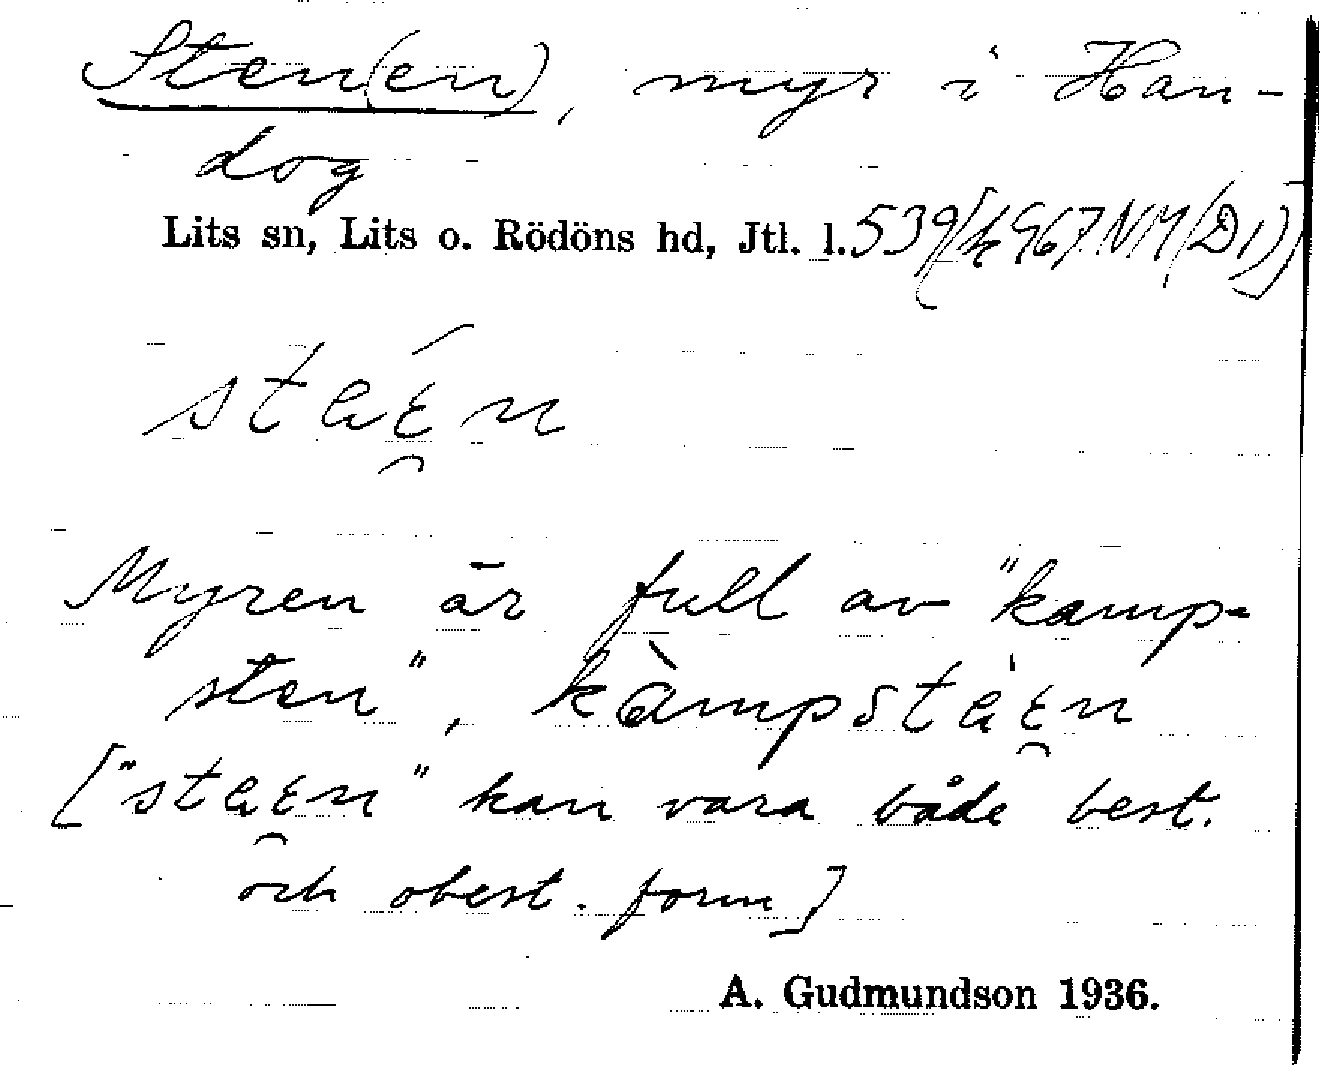 Sten(en), myr i Han-
dog
Lits sn, Lits o. Rödöns hd, Jtl. l. 539
staɛ̯́n
Myren är full av "kamp-
sten", kàmpstáɛ̯n
["staɛ̯n" kan vara både best.
och obest. form]
A. Gudmundson 1936.